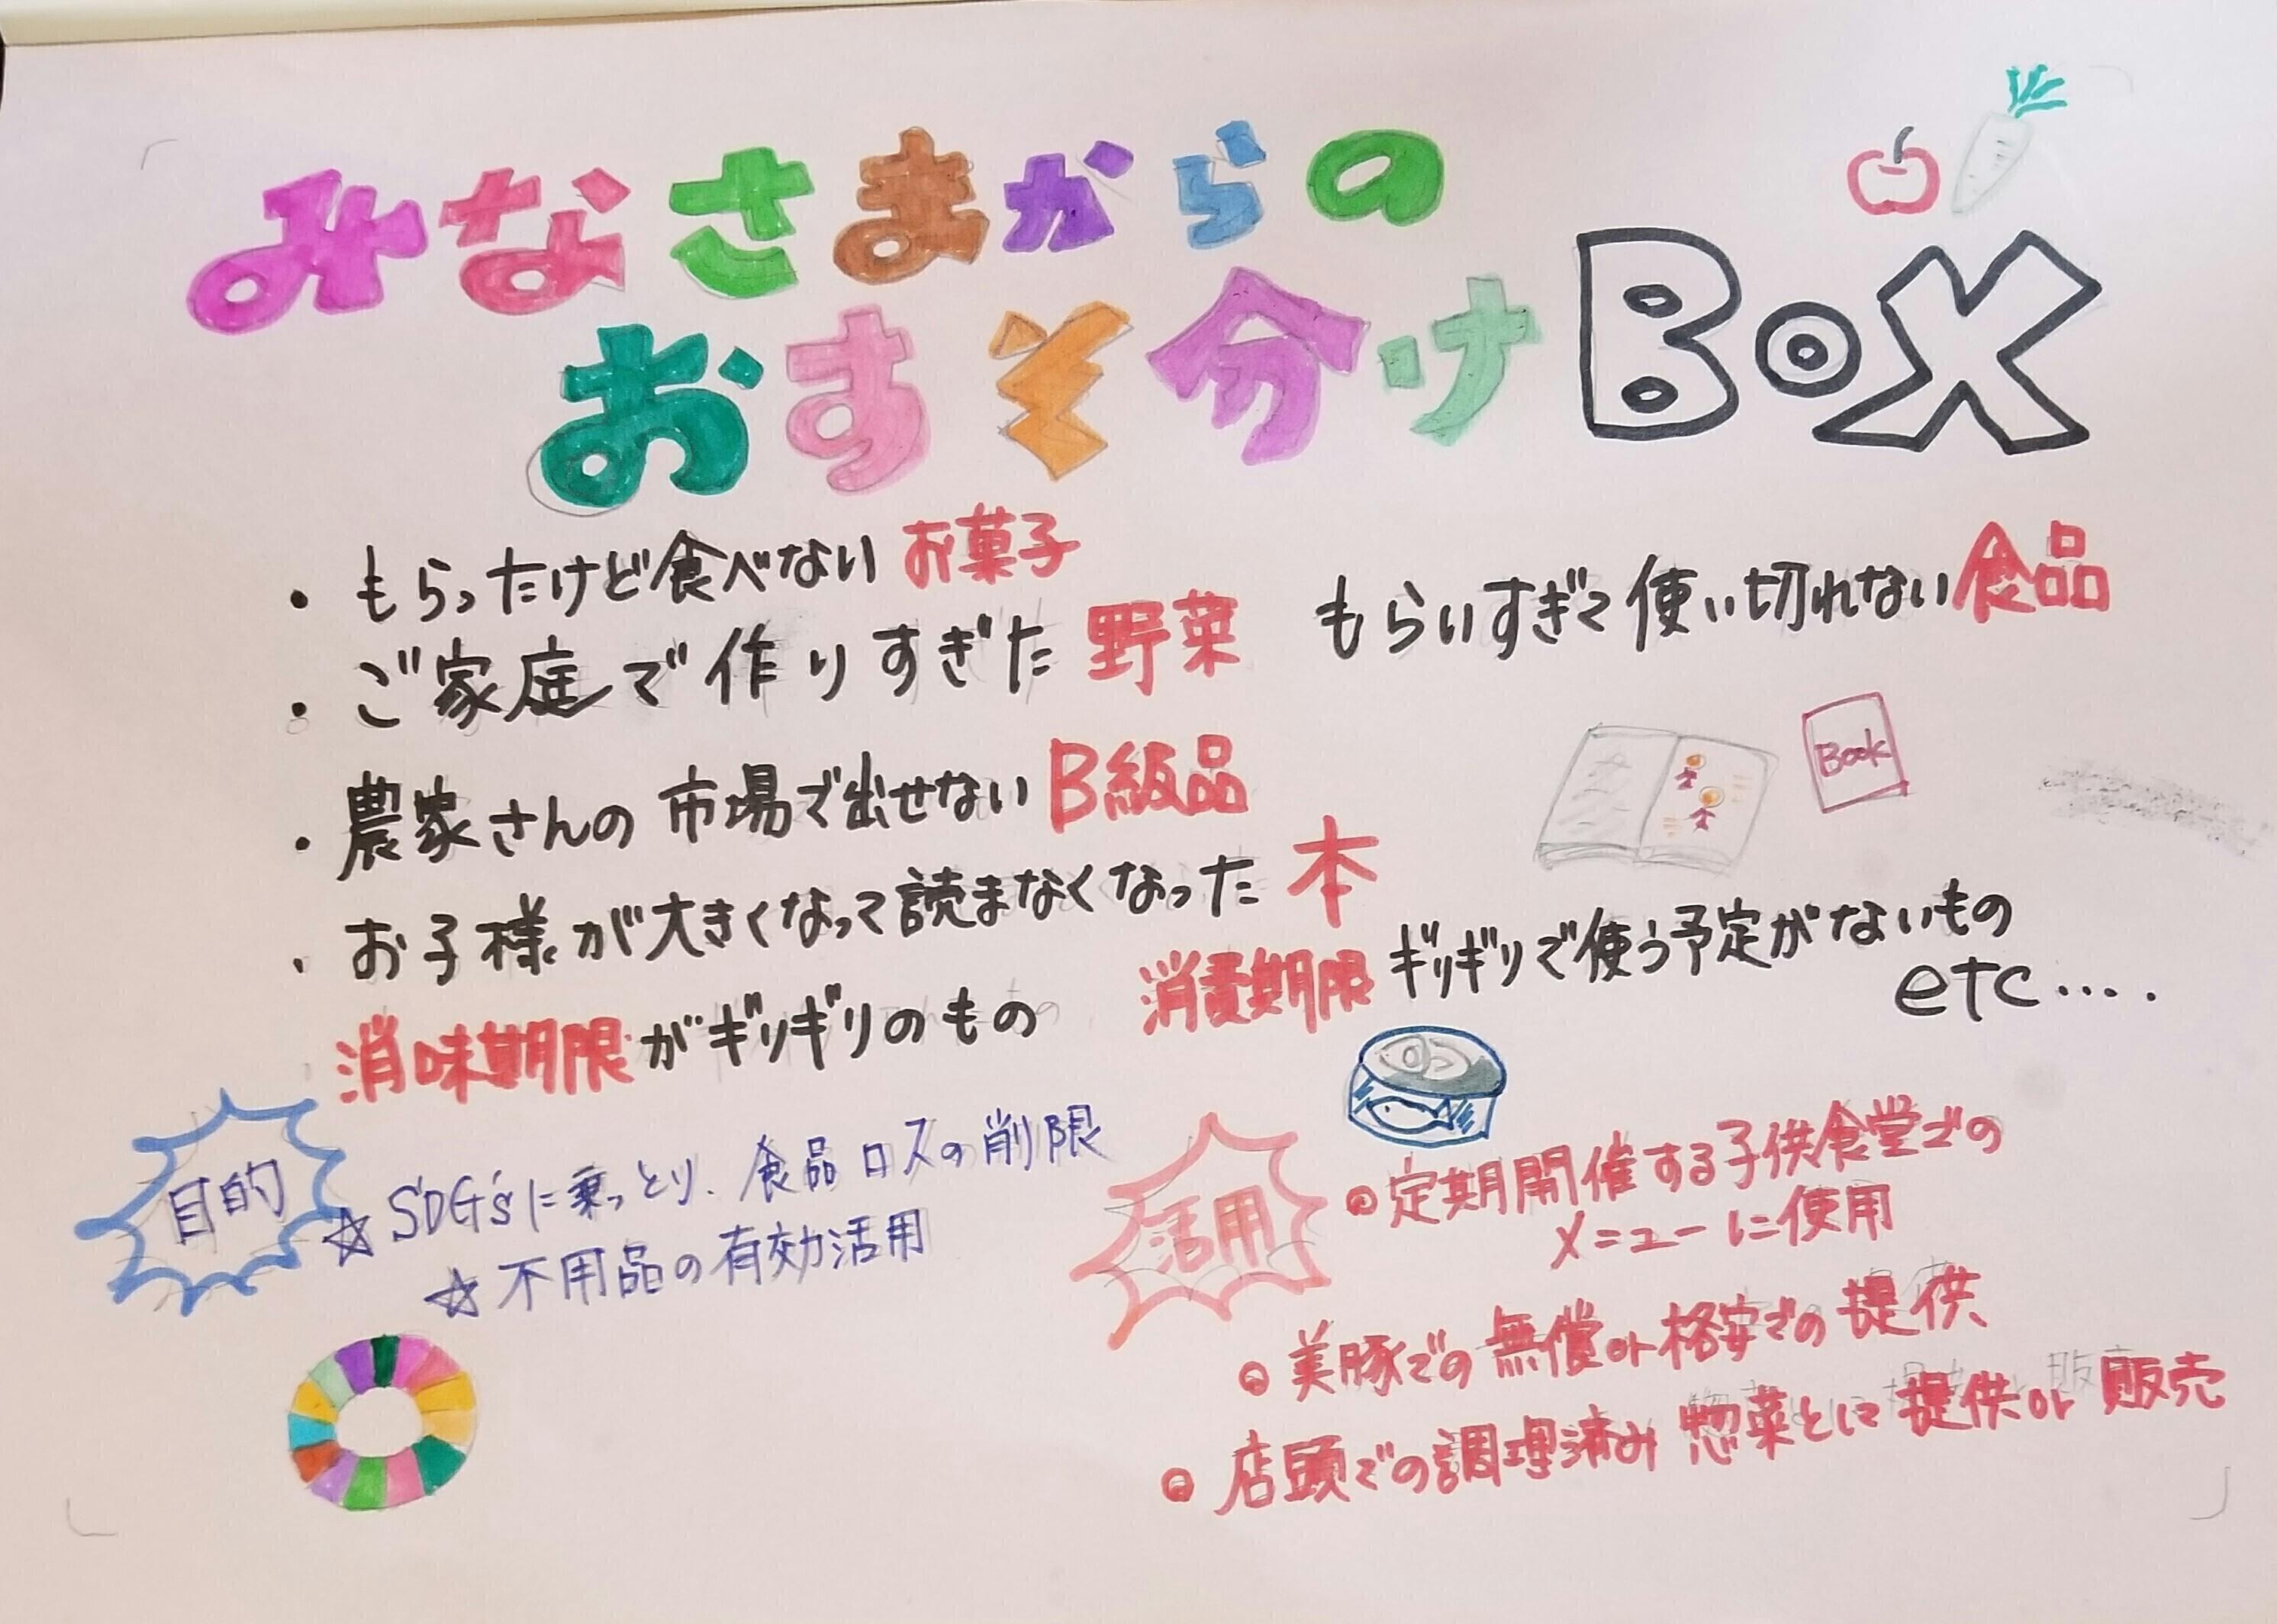 みなさまからの
おすそ分けBOX
・もらったけど食べないお菓子
もらいすぎて使い切れない食品
・ご家庭で作りすぎた野菜
・農家さんの市場で出せないB級品
Book
・お子様が大きくなって読まなくなった本
消味期限がギリギリのもの
消費期限ギリギリで使う予定がないもの
etc....
目的
☆SDG'sに乗っとり、食品ロスの削限
☆不用品の有効活用
活用
定期開催する子供食堂での
メニューに使用
美豚での無償or格安での提供
店頭での調理済み惣菜として提供or販売